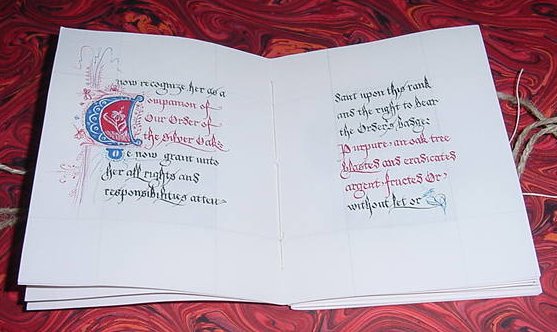 now recognize her as a
Companion of
Our Order of
the Silver Oak:
We now grant unto
her all rights and
responsibilities atten-
dant upon this rank
and the right to bear
the Order's badge:
Purpure·an oak tree
blasted and eradicated
argent·fructed Or·
without let or